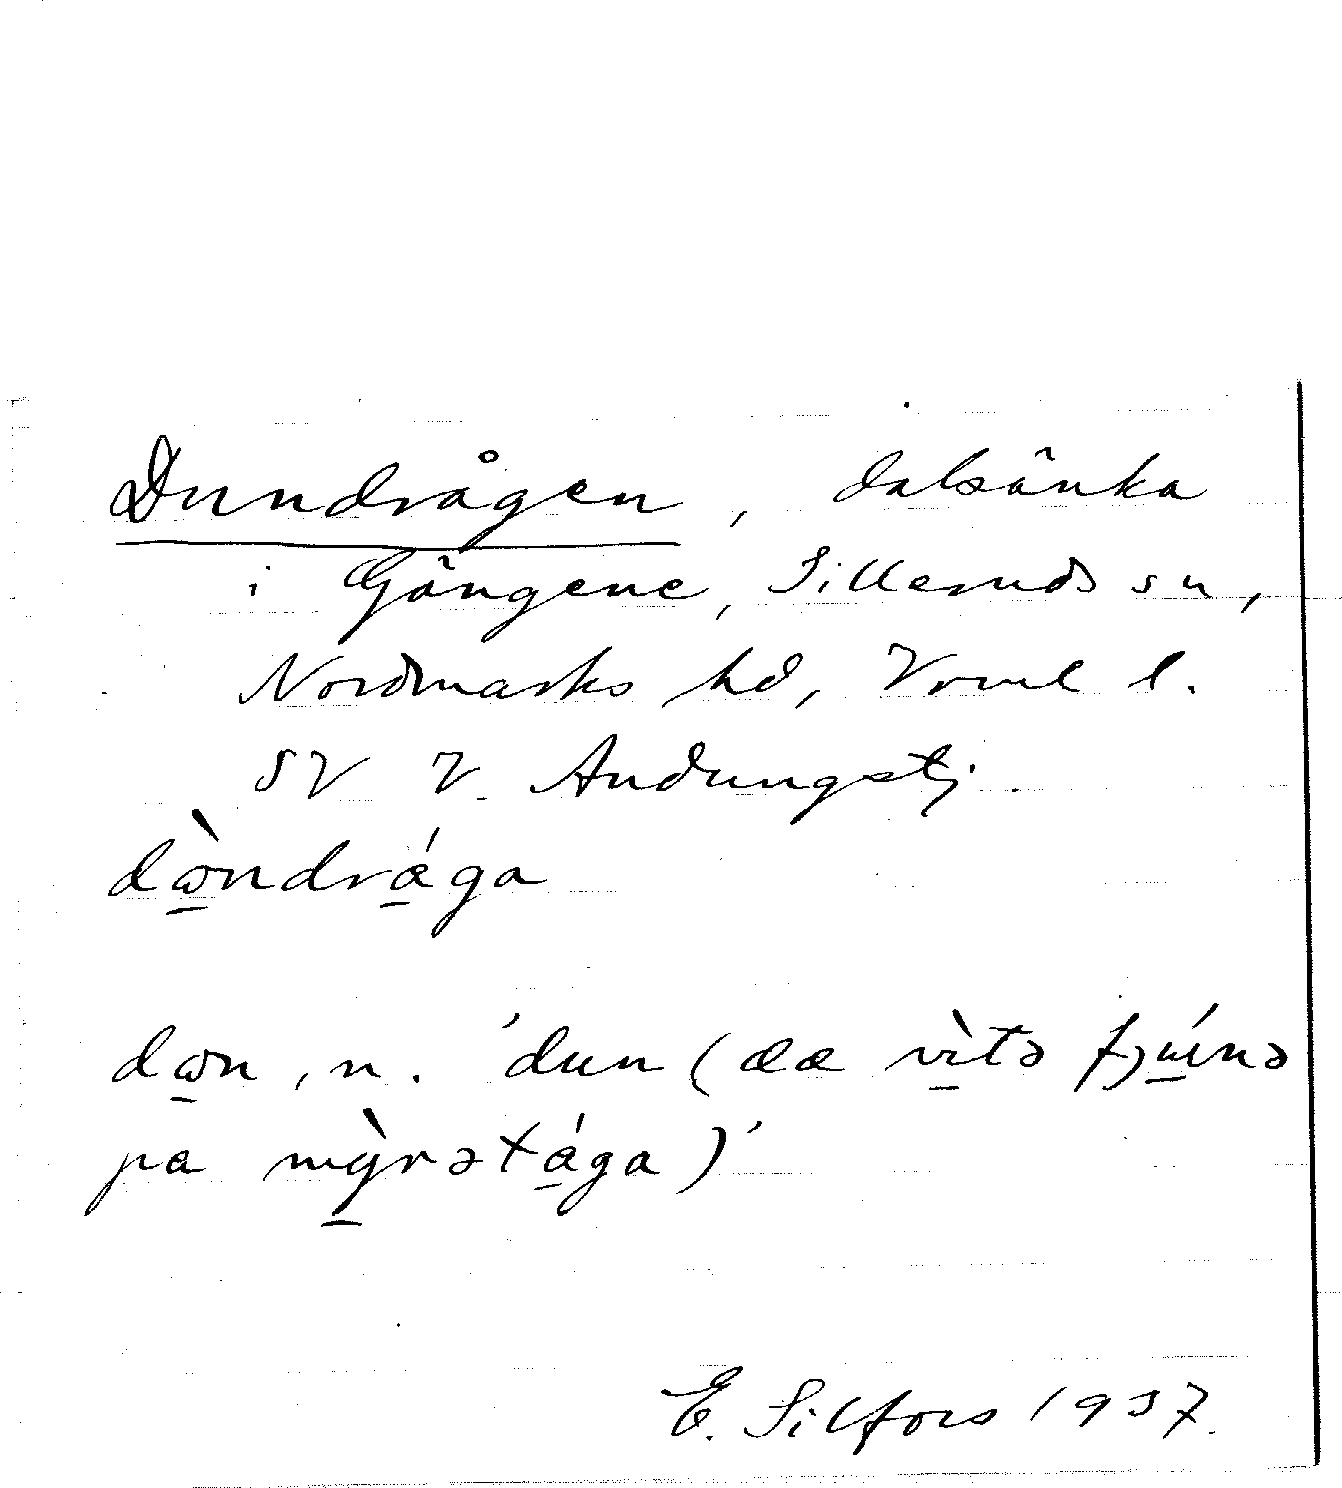 Dundrågen, dalsänka
i Gängene, Silleruds sn,
Nordmarks hd, Vrml l.
SV V. Andungstj.
dɷ̀ndrága
dɷn, n. 'dun (ææ vìtə fjúɩnə
pa mỳrətága)'
E. Silfors 1937.